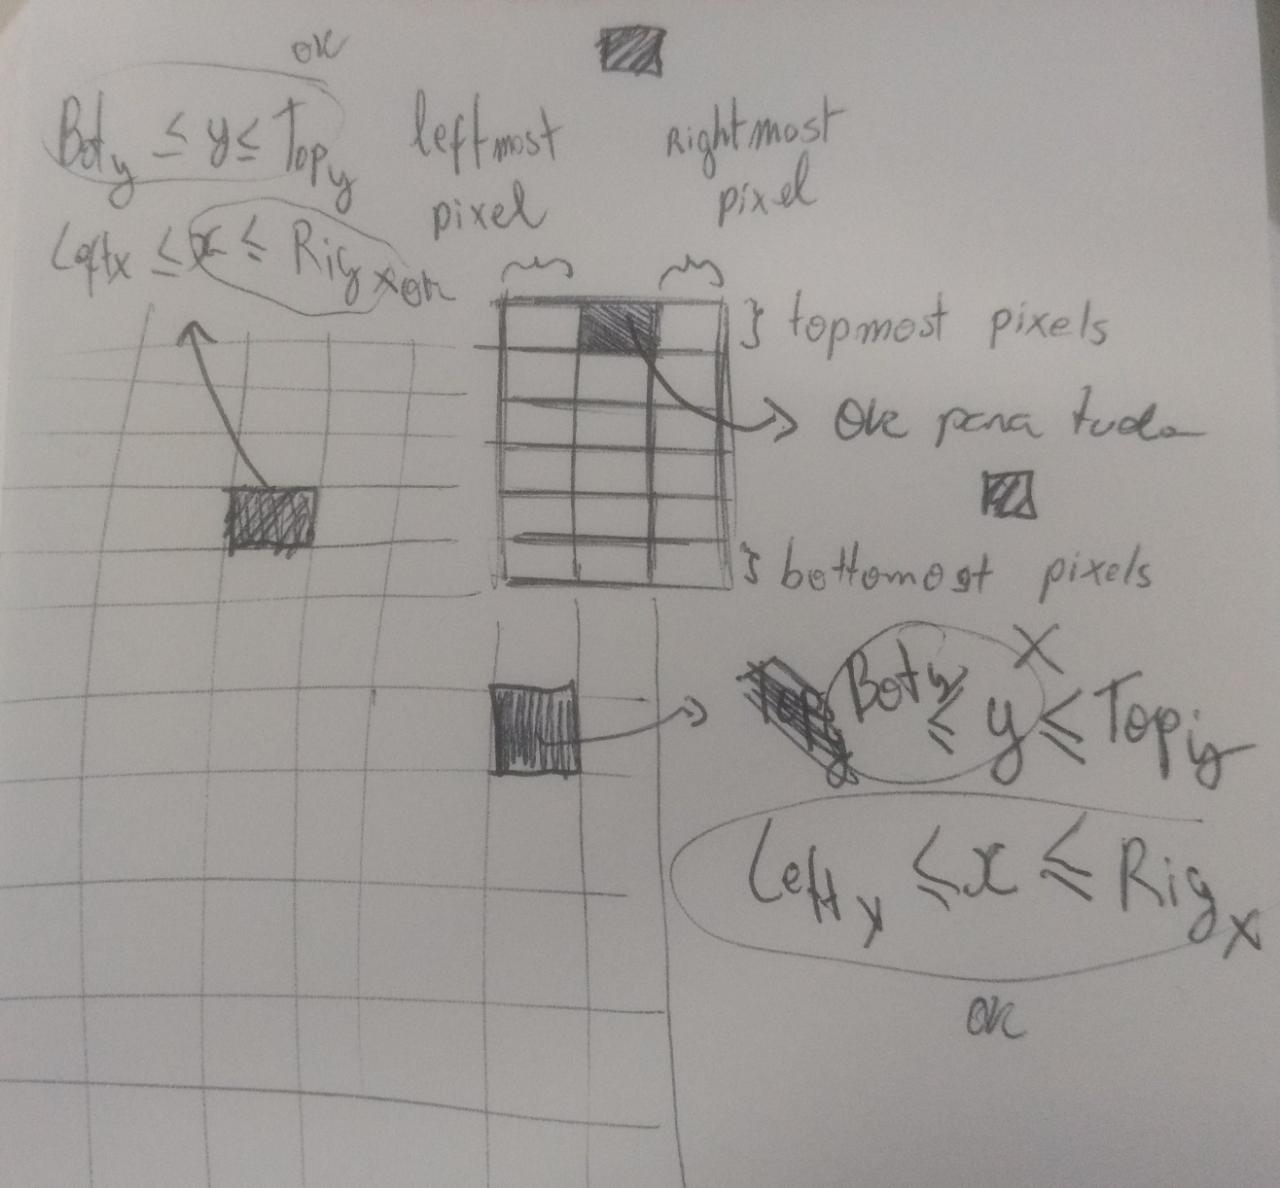 ok
Bot y ≤ y ≤ Top y
Left x ≤ x ≤ Rig x ok
leftmost pixel
Rightmost pixel
} topmost pixels
Ok para tudo
} bottomost pixels
X
Bot y ≤ y ≤ Top y
Left x ≤ x ≤ Rig x
ok